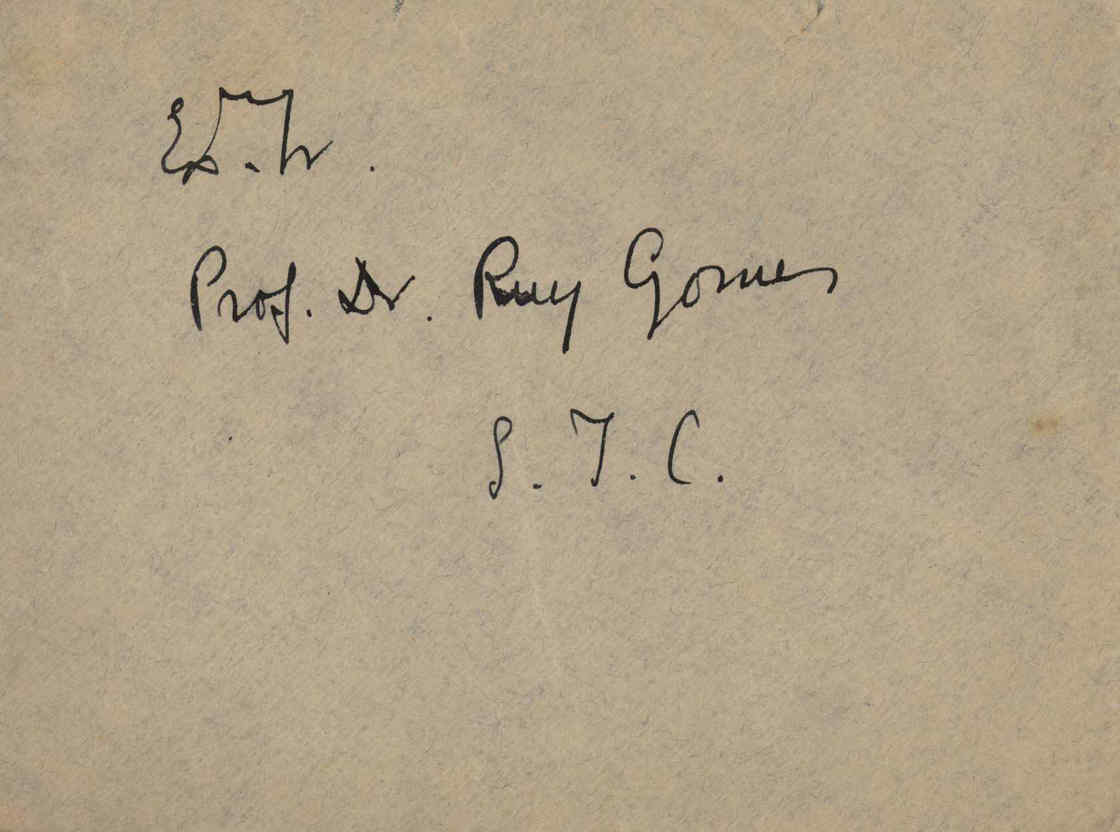 Prof. Dr. Ruy Gomes
S. T. C.